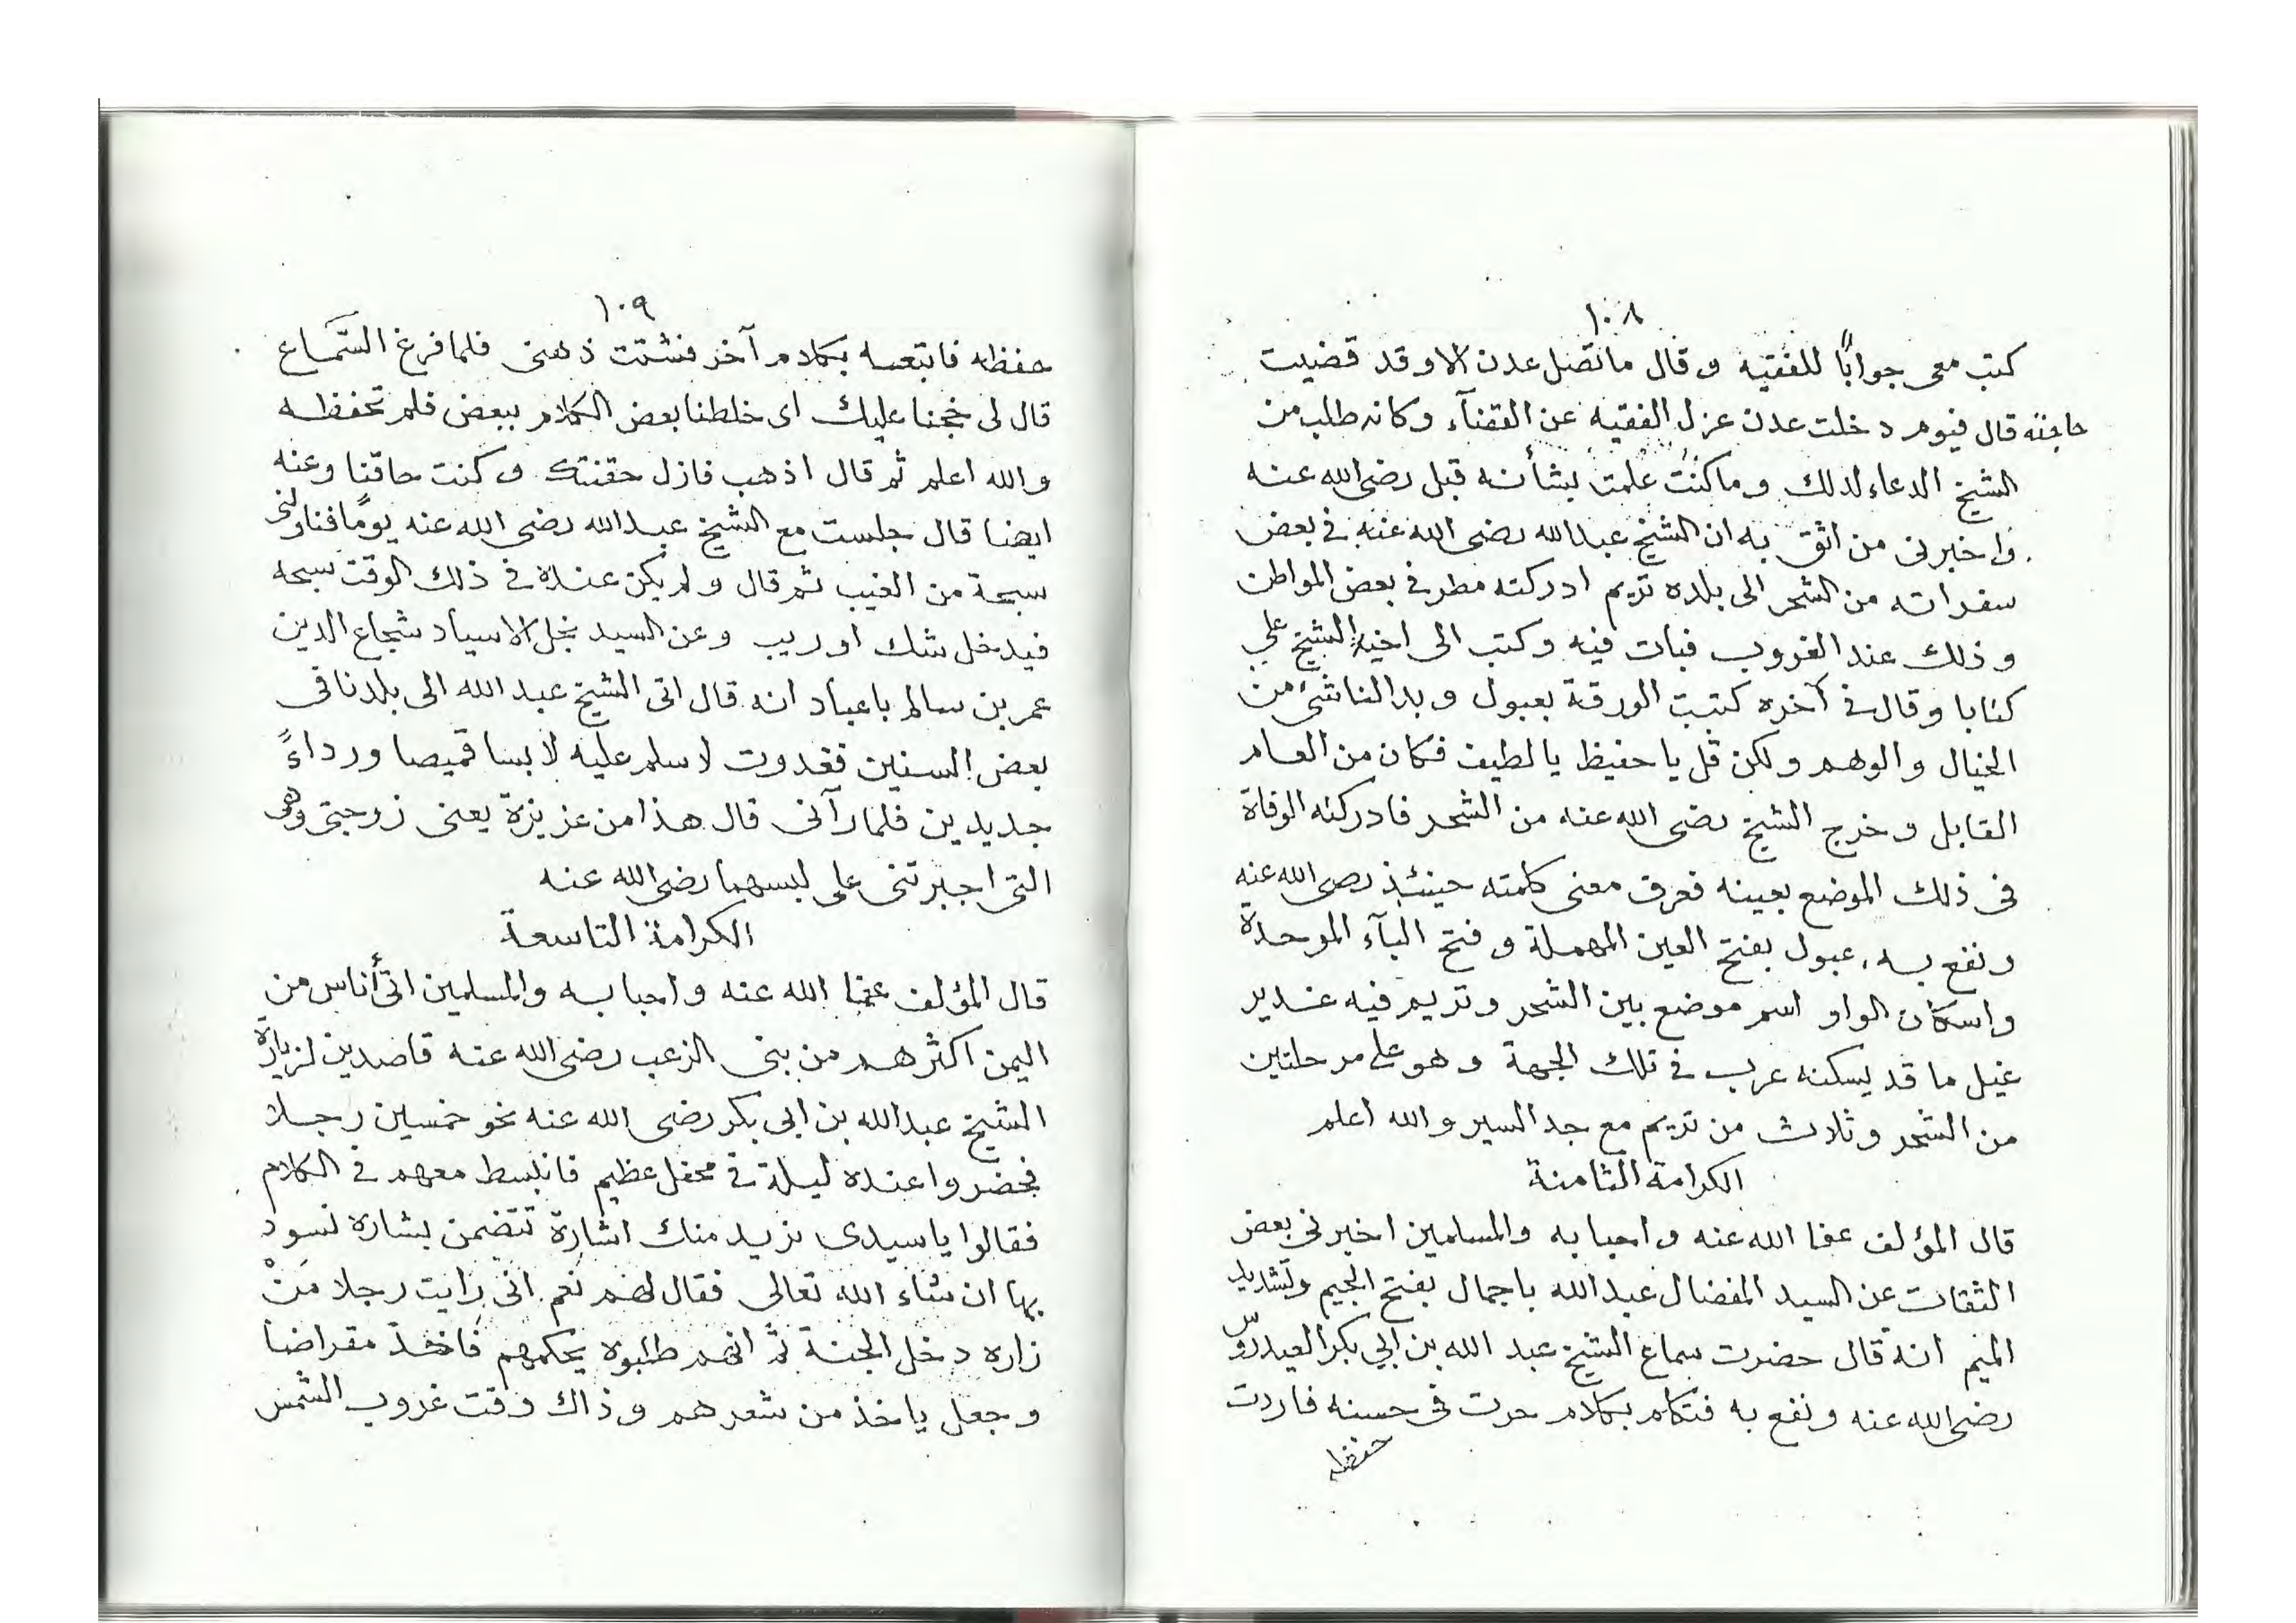 ١٠٨
كتب معى جوابًا للفقيه وقال ما تصل عدن الا وقد قضيت
حاجته قال فيوم دخلت عدن عزل الفقيه عن القضآء وكانه طلب من
الشيخ الدعاء لذلك وما كنت علمت بشأنه قبل رضى الله عنه
واخبرنى من اثق به ان الشيخ عبدالله رضى الله عنه فى بعض
سفراته من الشحر الى بلده تريم ادركته مطر فى بعض المواطن
وذلك عند الغروب فبات فيه وكتب الى اخيه الشيخ علي
كتابا وقال فى آخره كتبت الورقة بعبول وبار الناشئ من
الخيال والوهم ولكن قل يا حفيظ يا لطيف فكان من العام
القابل وخرج الشيخ رضى الله عنه من الشحر فادركته الوفاة
فى ذلك الموضع بعينه فعرف معنى كلمته حينئذ رضى الله عنه
ونفع به، عبول بفتح العين المهملة وفتح البآء الموحدة
واسكان الواو اسم موضع بين الشحر وتريم فيه غدير
غيل ما قد يسكنه عرب فى تلك الجهة وهو على مرحلتين
من الشحر وثلاث من تريم مع جد السير والله اعلم
الكرامة الثامنة
قال المؤلف عفا الله عنه واحبابه والمسلمين اخبرنى بعض
الثقات عن السيد المفضال عبدالله باجمال بفتح الجيم وتشديد
الميم انه قال حضرت سماع الشيخ عبد الله بن ابي بكر العيدروس
رضى الله عنه ونفع به فتكلم بكلام حرت فى حسنه فاردت
حفظه
١٠٩
حفظه فاتبعه بكلام آخر فنشتت ذهنى فلما فرغ السَّمـاع
قال لى خجنا عليك اى خلطنا بعض الكلام ببعض فلم تحفظـه
والله اعلم ثم قال اذهب فازل حقنتك وكنت حاقنا وعنه
ايضا قال جلست مع الشيخ عبدالله رضى الله عنه يومًا فناولنى
سبحة من الغيب ثم قال ولم يكن عنده فى ذلك الوقت سبحة
فيدخل شك او ريب وعن السيد نجل الاسياد شجاع الدين
عمر بن سالم باعباد انه قال اتى الشيخ عبد الله الى بلدنا فى
بعض السنين فغدوت لاسلم عليه لابسا قميصا ورداءً
جديدين فلما رآنى قال هذا من عزيزة يعنى زوجتى وهى
التى اجبرتنى على لبسهما رضى الله عنه
الكرامة التاسعة
قال المؤلف عفا الله عنه واحبابه والمسلمين اتى أناس من
اليمن اكثرهم من بنى الزعب رضى الله عنه قاصدين لزيارة
الشيخ عبدالله بن ابى بكر رضى الله عنه نحو خمسين رجلا
فحضروا عنده ليلة فى محفل عظيم فانبسط معهم فى الكلام
فقالوا يا سيدى نريد منك اشارة تتضمن بشارة نسود
بها ان شاء الله تعالى فقال لهم نعم انى رايت رجلا مَنْ
زاره دخل الجنة ثم انهم طلبوه يحكمهم فاخذ مقراضا
وجعل ياخذ من شعرهم وذاك وقت غروب الشمس